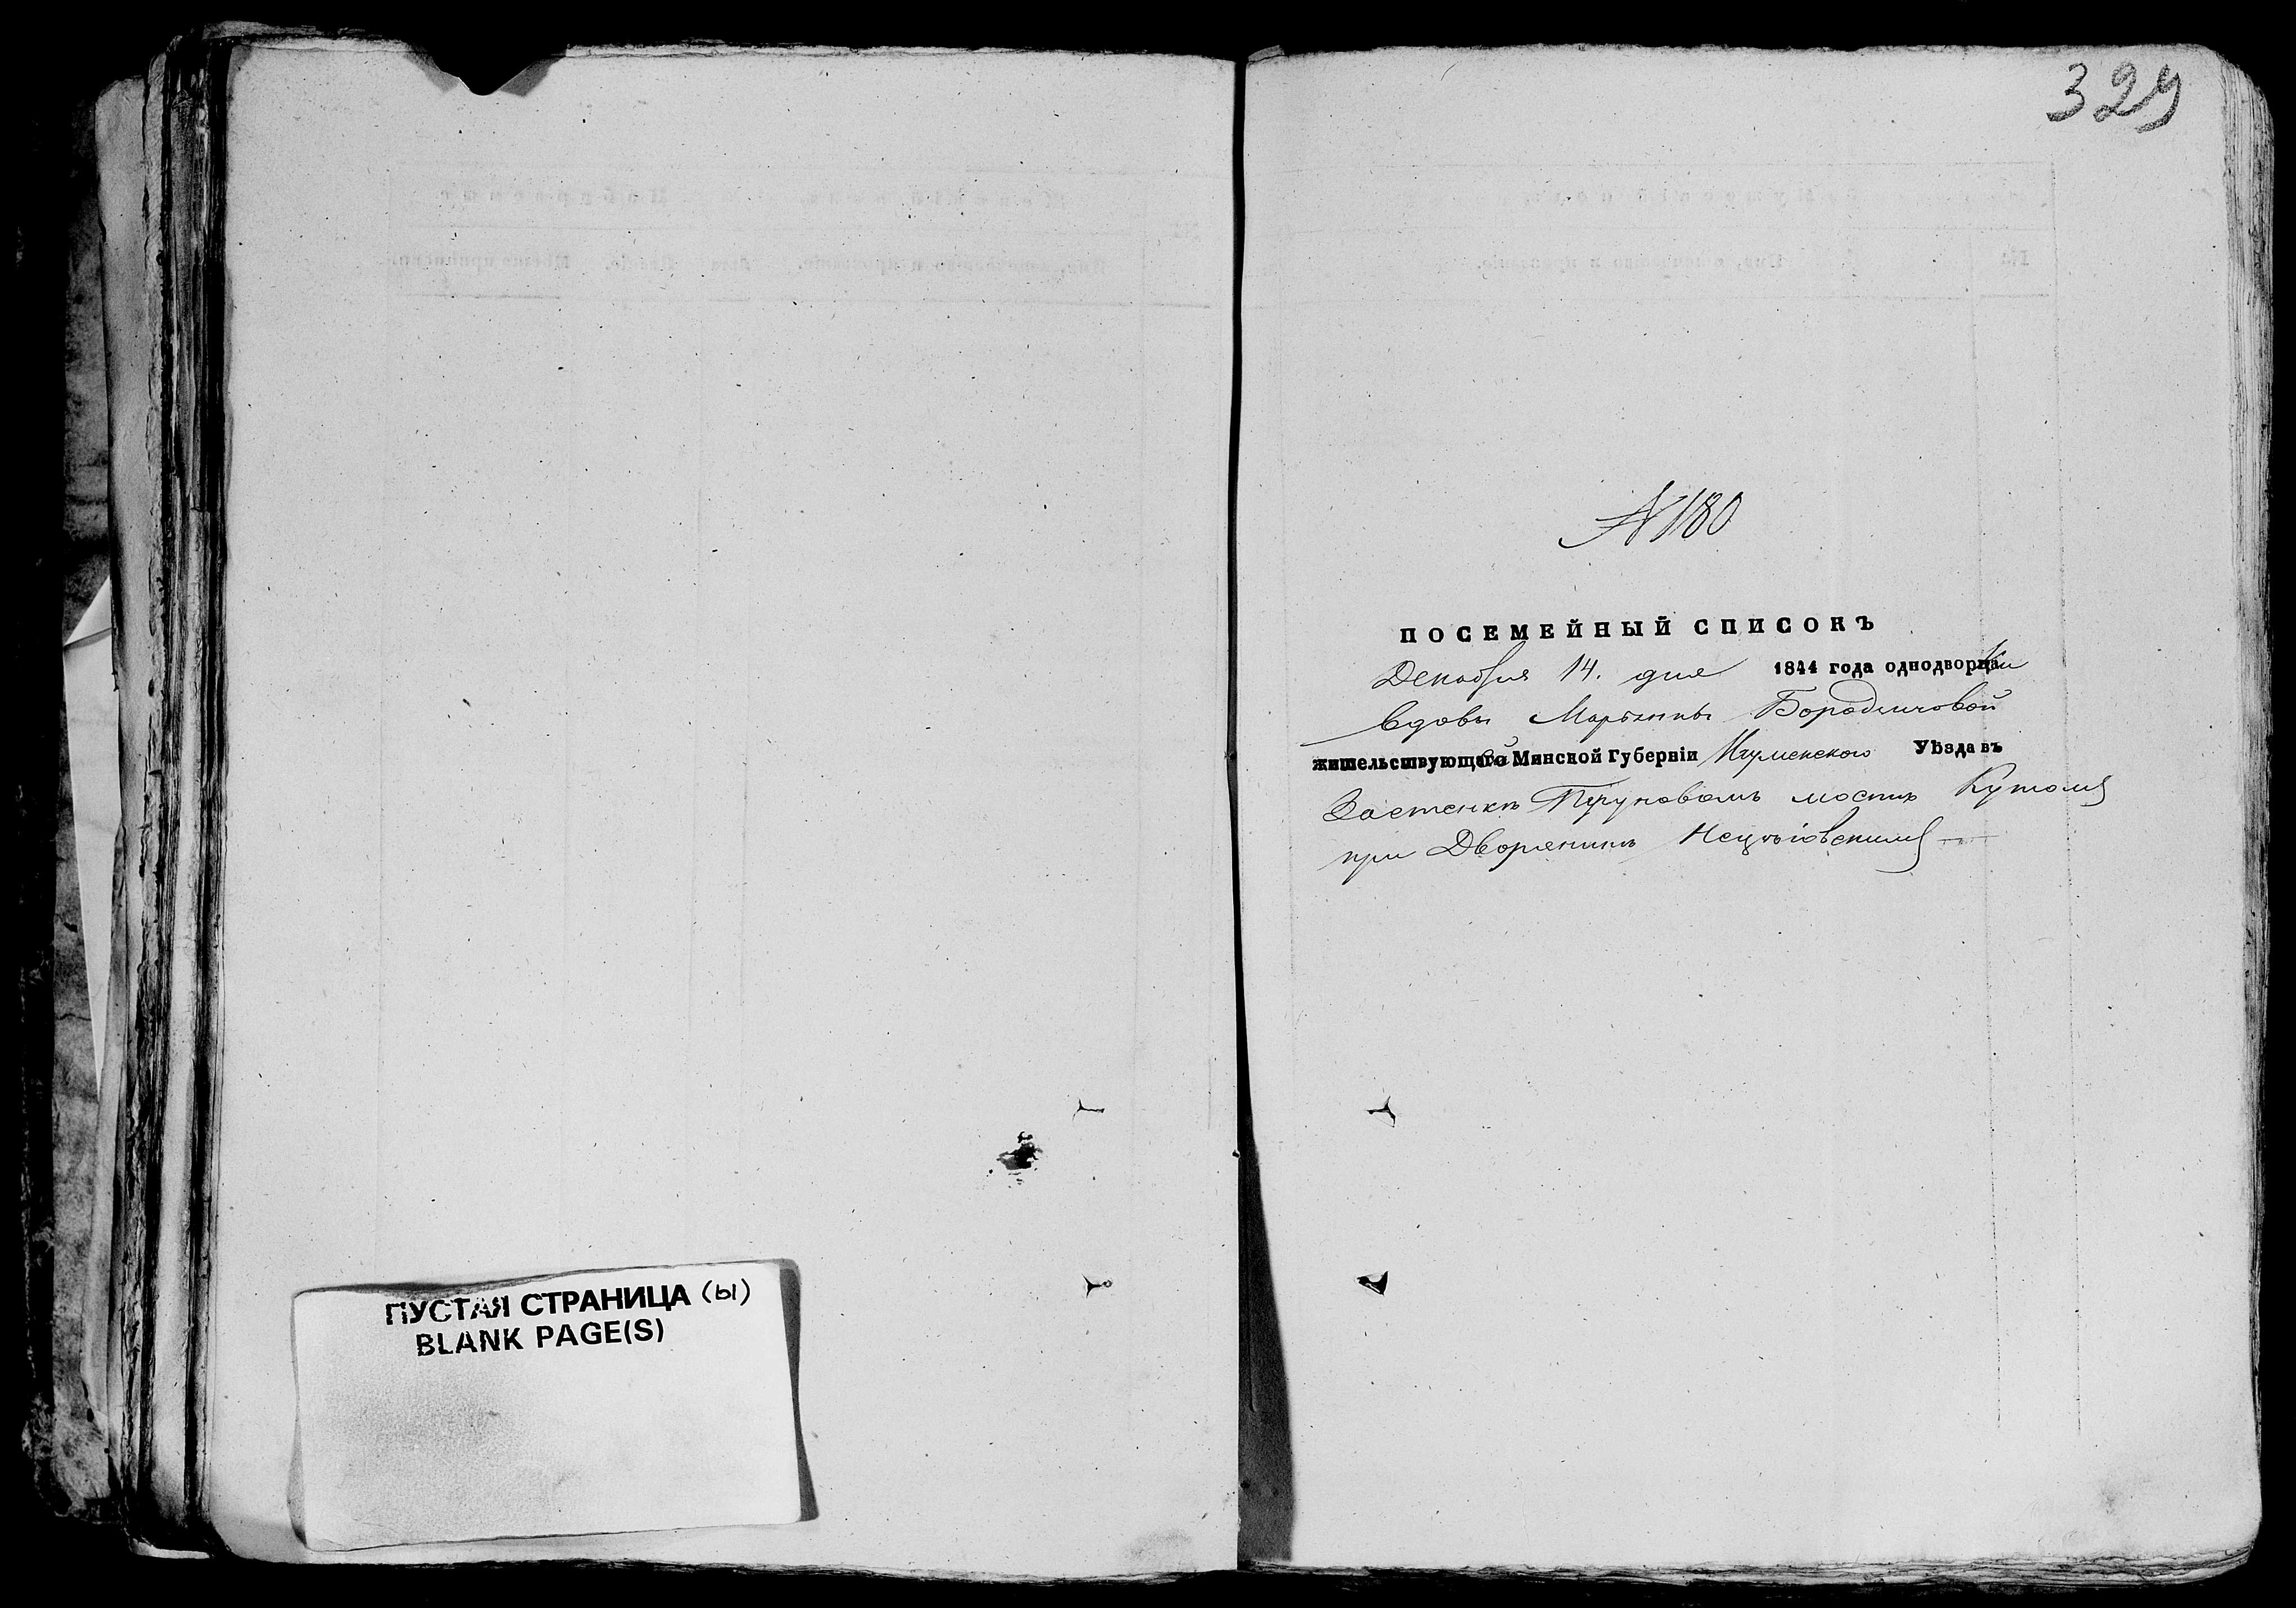 329
N 180
ПОСЕМЕЙНЫЙ СПИСОКЪ
Декабря 14. дня 1844 года однодворки
вдовы Марьянны Бородичовой
жительствующей Минской Губерніи Игуменскаго Уѣзда въ
Застенкѣ Перуновомъ мостѣ
при Дворянинѣ
ПУСТАЯ СТРАНИЦА (ы)
BLANK PAGE(S)